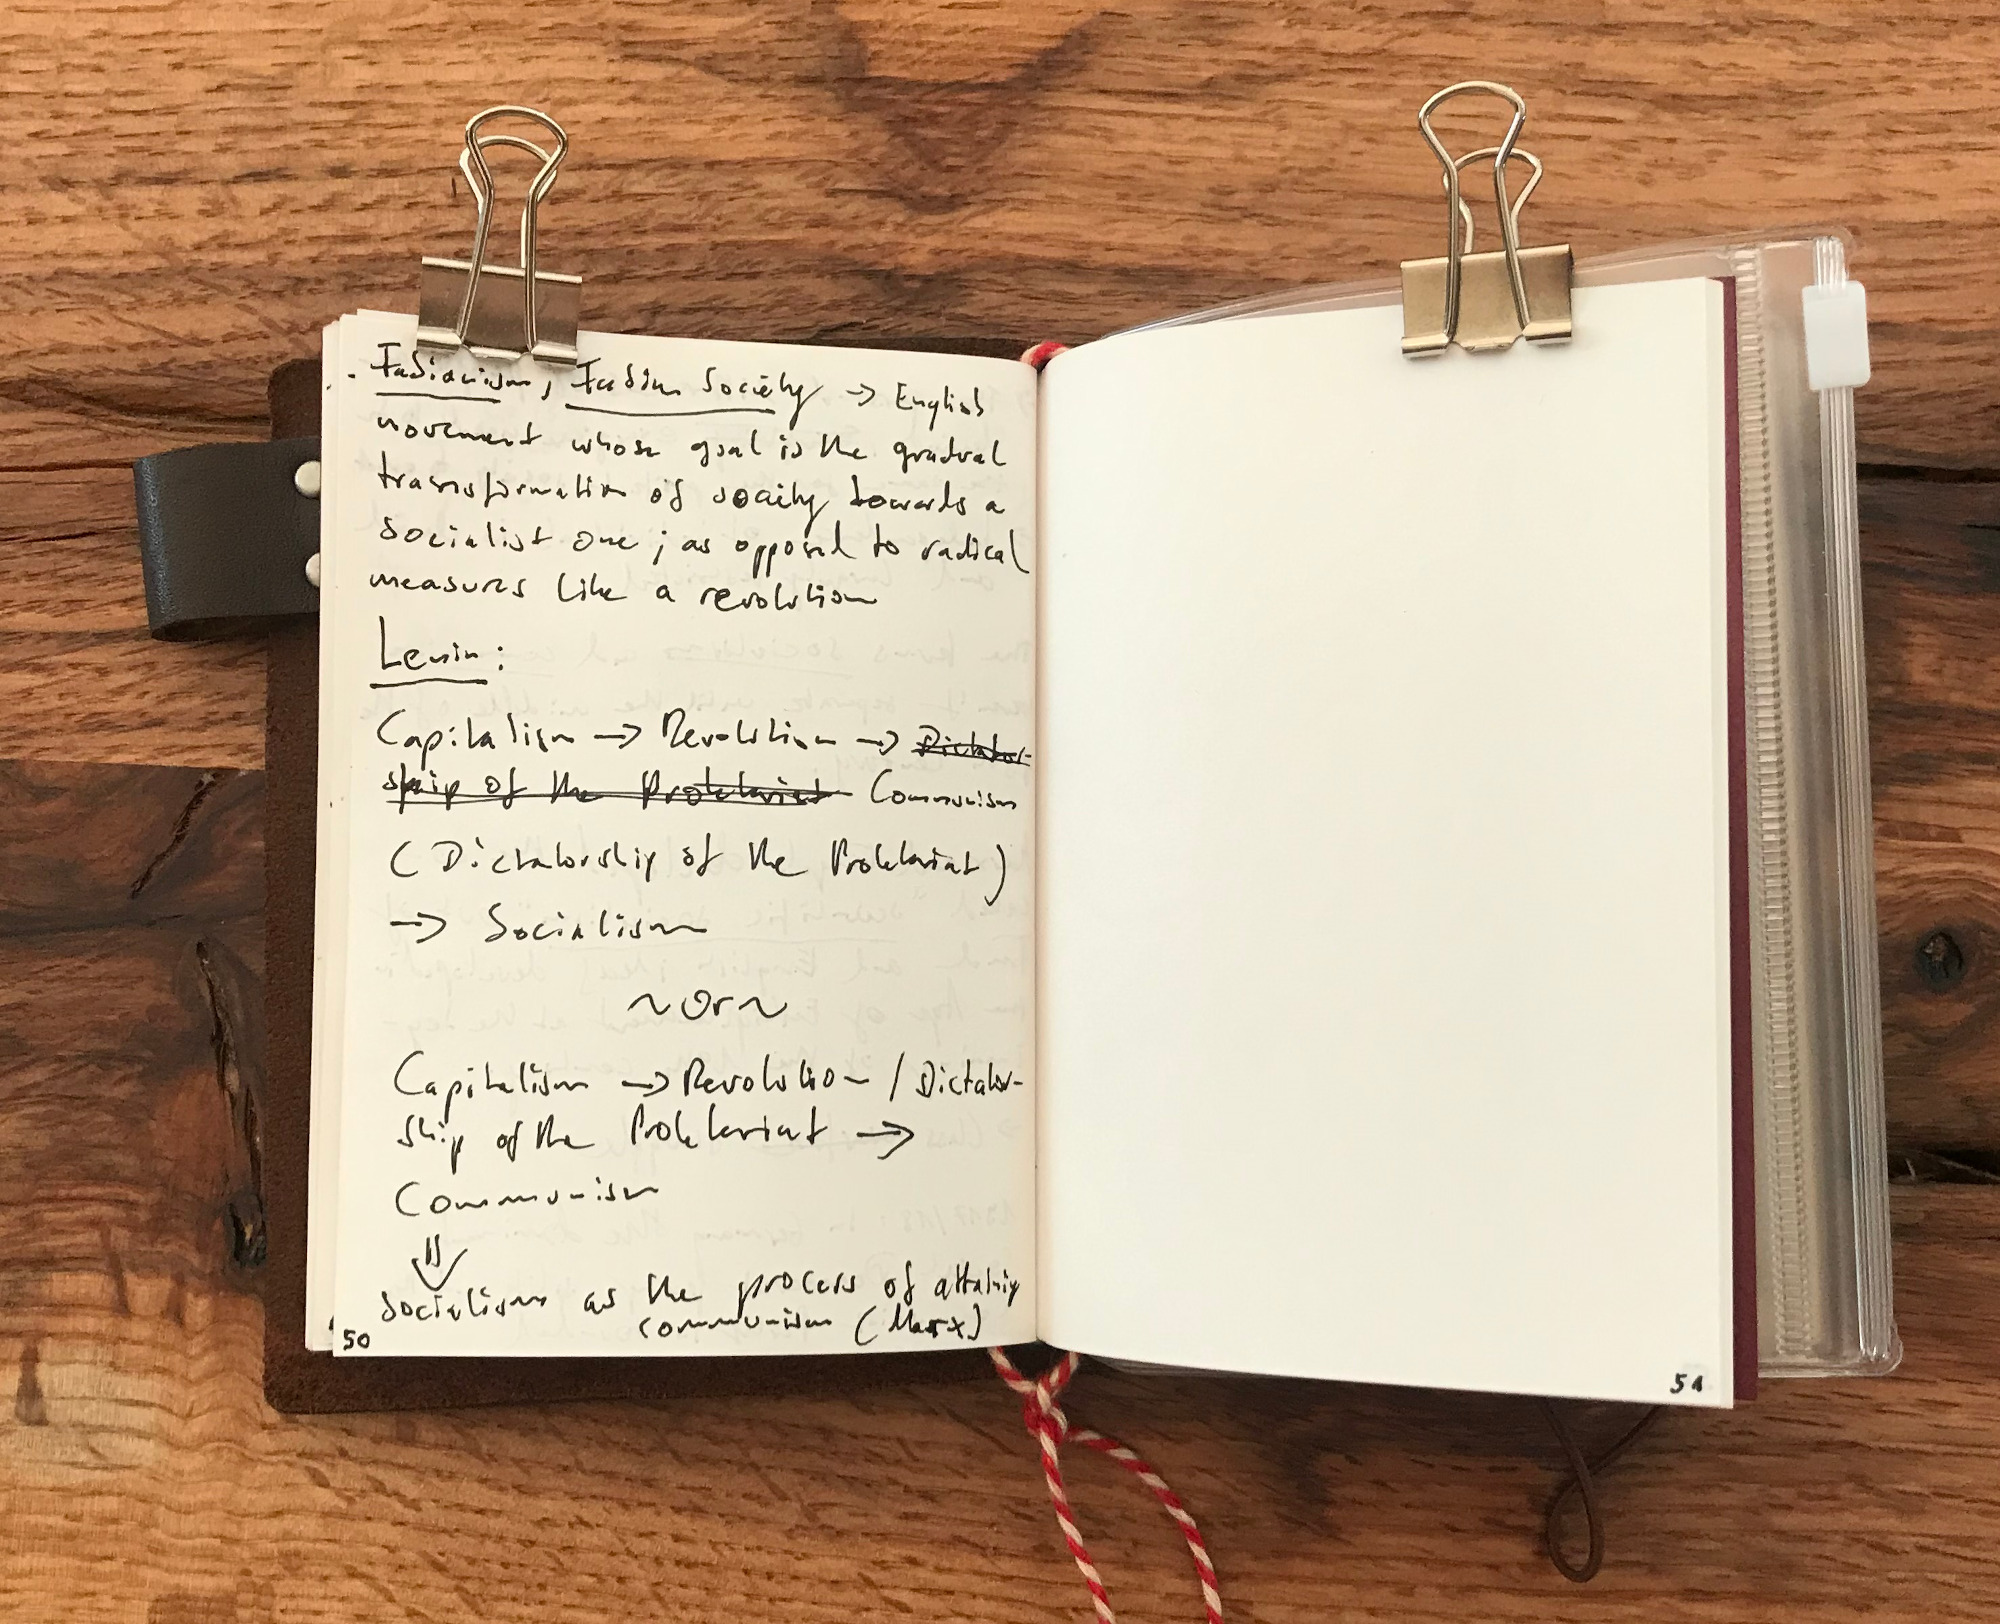 · Fabianism, Fabian Society → English
movement whose goal is the gradual
transformation of society towards a
socialist one; as opposed to radical
measures like a revolution
Lenin:
Capitalism → Revolution → Dictator-
ship of the Proletariat Communism
(Dictatorship of the Proletariat)
→ Socialism
~or~
Capitalism → Revolution / Dictator-
ship of the Proletariat →
Communism
⇓
Socialism as the process of attaining
communism (Marx)
50
51